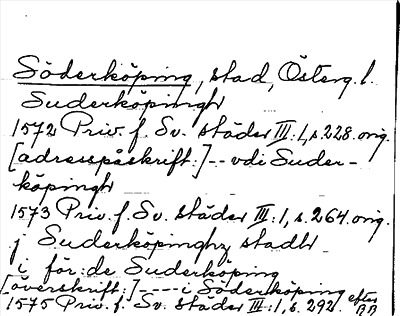 Söderköping, stad, Österg. l.
Suderköpingh
1572 Priv. f. Sv. städer III:1, s. 228. orig.
[adresspåskrift:]-- vdi Suder-
köpingh
1573 Priv. f. Sv. städer III:1, s. 264. orig.
j Suderköpinghz stadh
i för:de Suderköping
[överskrift:]---- i Söderköping efter
1575 Priv. f. Sv. städer III:1, s. 292. BB